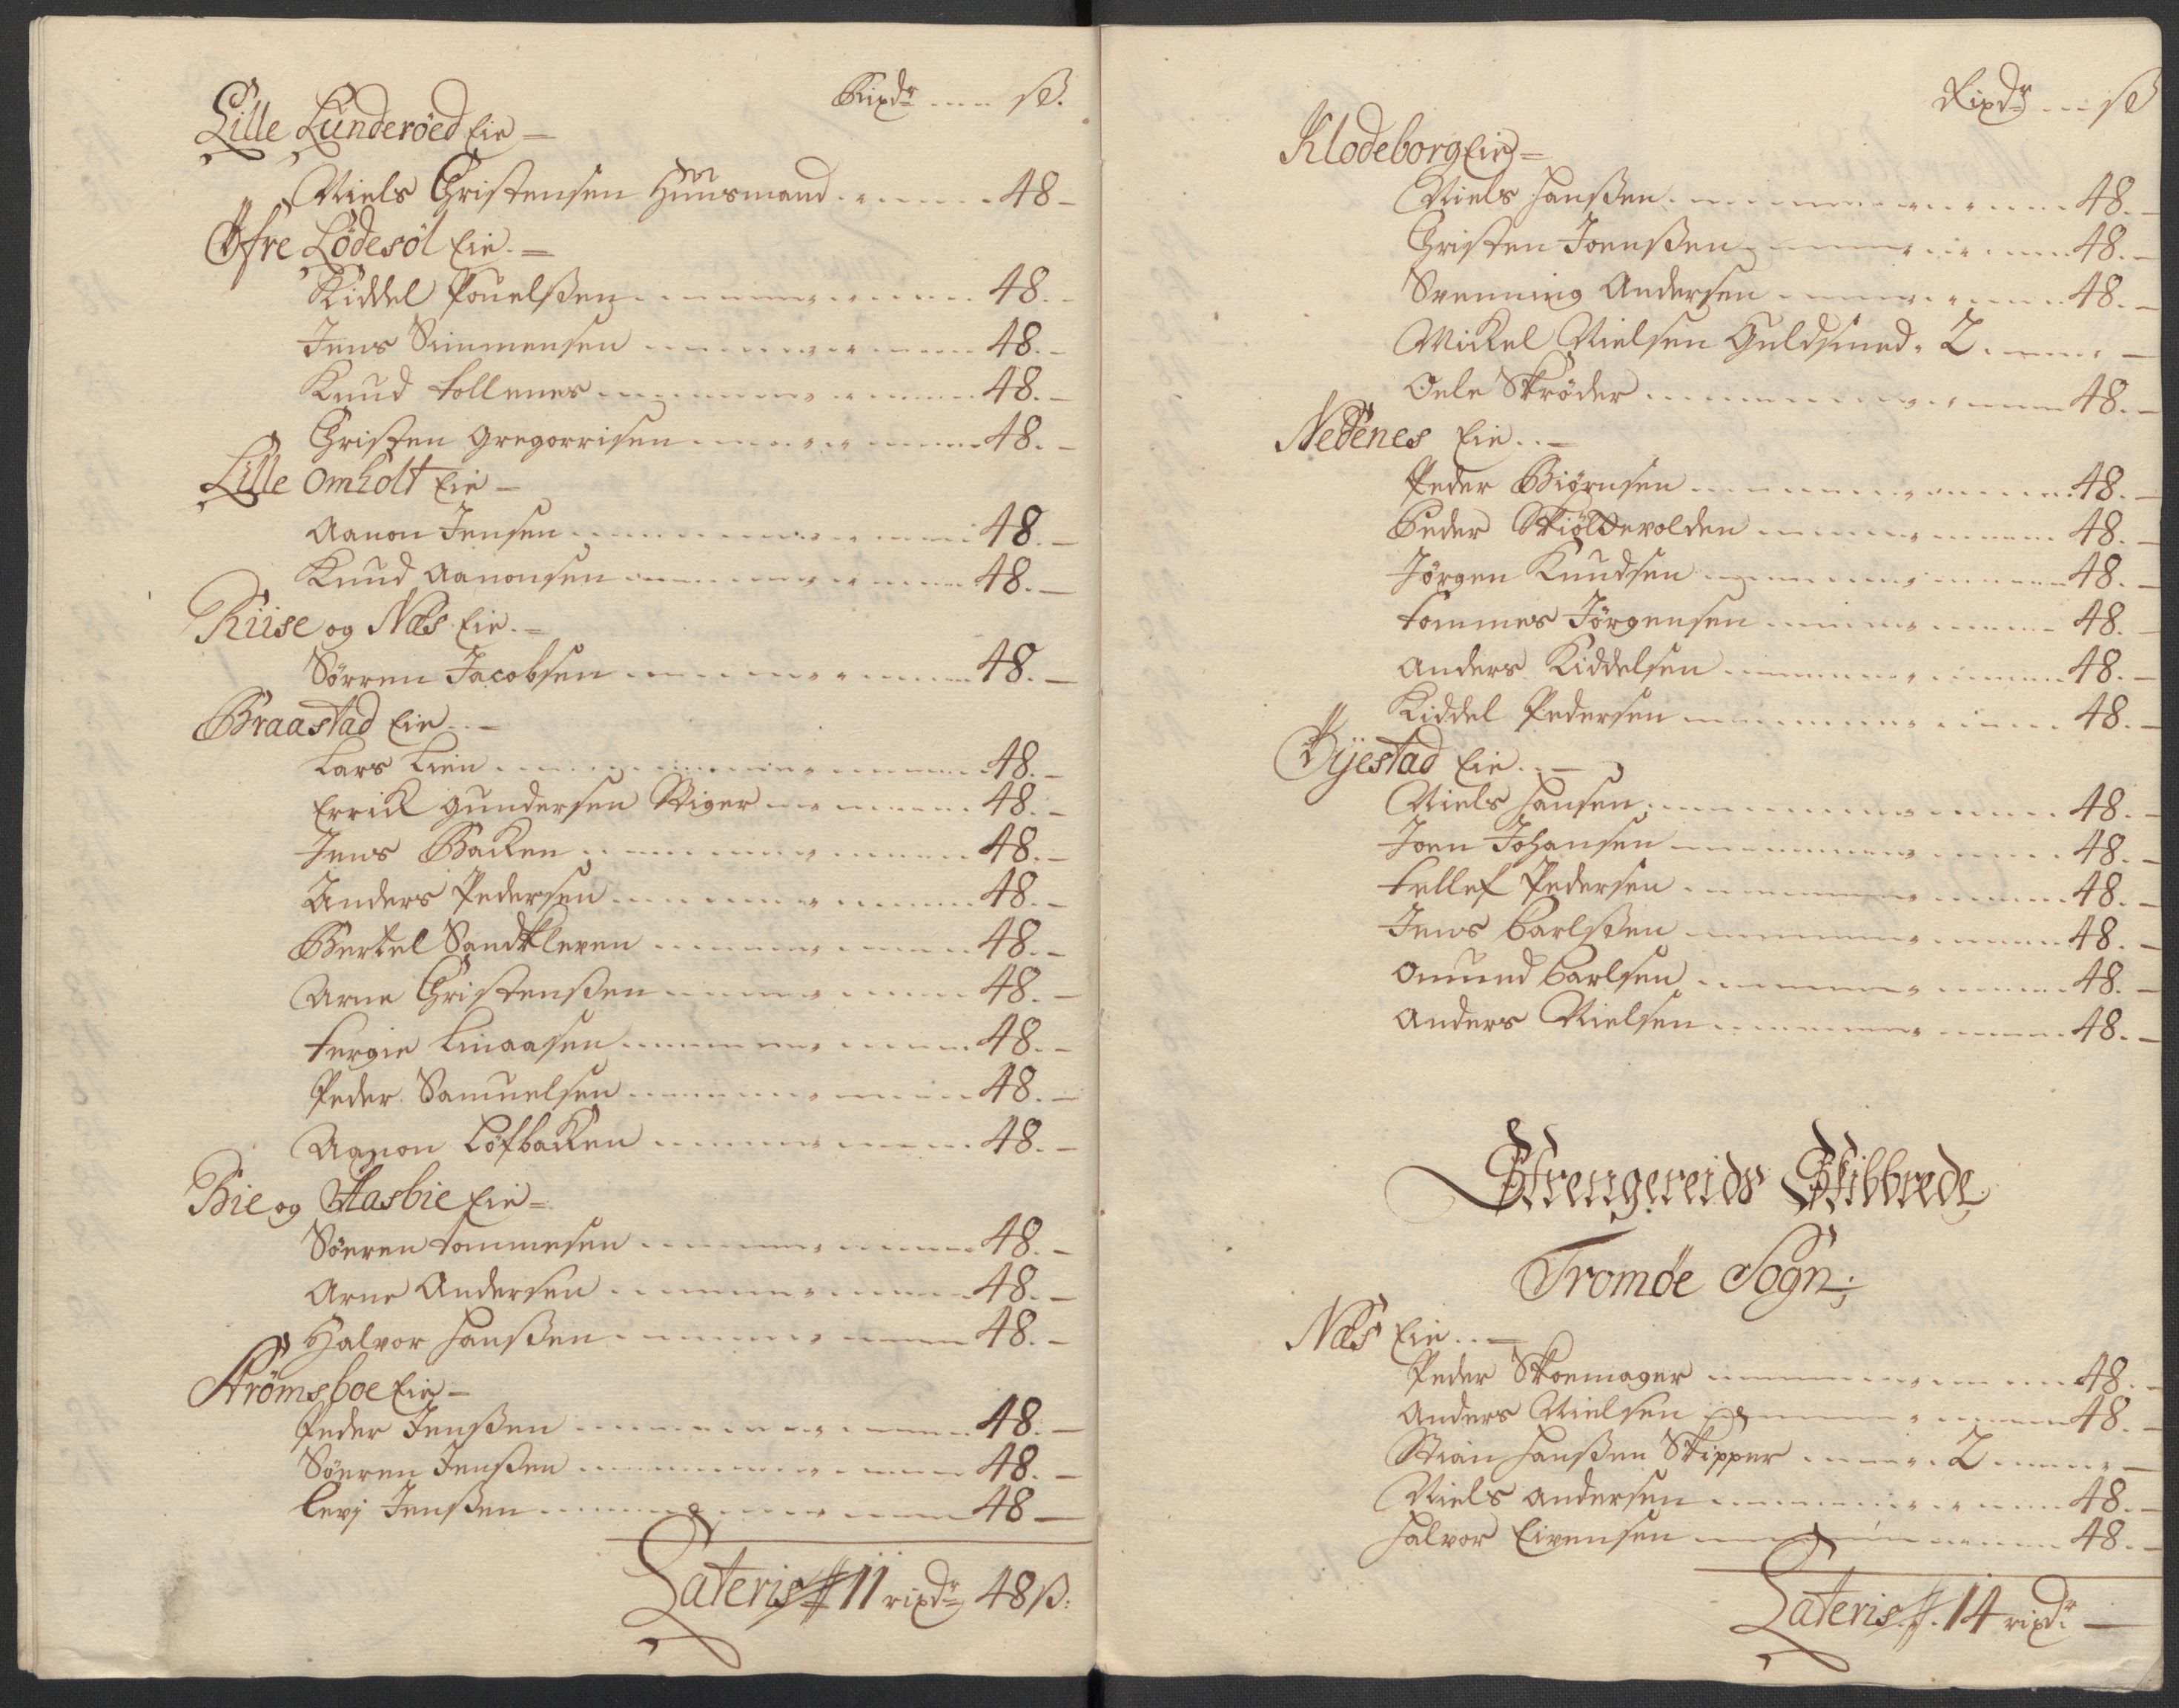 Rixdr .... ß.
Lille Lunderöed Eie —
Niels Christensen Huusmand 48 —
Øfre Lödesöl Eie. —
Kiddel Pouelßen 48. —
Jens Simmensen 48. —
Knud Tollenes 48. —
Christen Gregorrisen 48. —
Lille Omholt Eie —
Aanon Jensen 48. —
Knud Aanonsen 48. —
Riise og Næs Eie. —
Sörren Jacobsen 48. —
Braastad Eie. —
Lars Lien 48. —
Errick Gundersen Stiger 48. —
Jens Backen 48. —
Anders Pedersen 48. —
Bertel Sandkleven 48. —
Arne Christenßen 48. —
Tergie Linaasen 48. —
Peder Samuelsen 48. —
Aanon Löfbacken 48. —
Bie og Aasbie Eie =
Söeren Tommesen 48. —
Arne Andersen 48. —
Halvor Hanßen 48. —
Strömsboe Eie —
Peder Jenßen 48. —
Söeren Jenßen 48. —
Levj Jenßen 48 —
Lateris 11 rixdr 48 ß:
Rixdr ... ß
Klodeborg Eie =
Niels Hanßen 48. —
Christen Joenßen 48. —
Svenning Andersen 48. —
Mickel Nielsen Guldsmed. 2. —
Oele Skröder 48. —
Nedenes Eie.. —
Peder Biörnsen 48. —
Peder Skiöldevolden 48. —
Jörgen Knudsen 48. —
Tommes Jörgensen 48. —
Anders Kiddelsen 48. —
Kiddel Pedersen 48. —
Øyestad Eie.. —
Niels Hansen 48. —
Joen Johansen 48. —
Tellef Pedersen 48. —
Jens Carlßen 48. —
Omund Carlsen 48. —
Anders Nielsen 48. —
Strengereids Skibbrede
Tromöe Sogn:
Næs Eie.. —
Peder Skoemager 48. —
Anders Nielsen 48. —
Stian Hanßen Skipper 2 —
Niels Andersen 48. —
Halvor Eivensen 48. —
Lateris 14 rixdr —